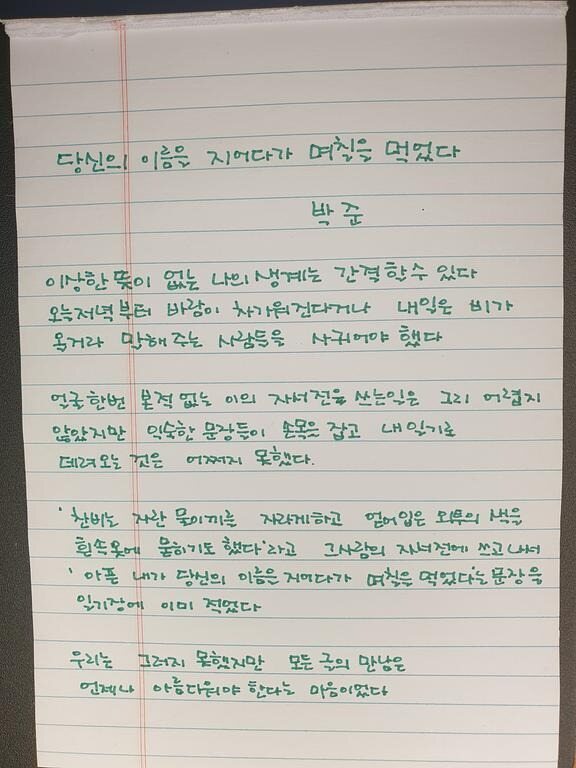 당신의 이름을 지어다가 며칠을 먹었다
박 준
이상한 뜻이 없는 나의 생계는 간격할수 있다
오늘저녁부터 바람이 차가워진다거나 내일은 비가
올거라 말해주는 사람들을 사귀어야 했다
얼굴한번 본적없는 이의 자서전을 쓰는일은 그리 어렵지
않았지만 익숙한 문장들이 손목을 잡고 내 일기로
데려오는 것은 어쩌지 못했다.
'찬비는 자란 물이끼를 자라게하고 얻어입은 외투의 색을
흰속옷에 묻히기도 했다'라고 그사람의 자서전에 쓰고나서
'아픈 내가 당신의 이름을 지어다가 며칠을 먹었다'는 문장을
일기장에 이미 적었다
우리는 그러지 못했지만 모든 글의 만남은
언제나 아름다워야 한다는 마음이었다